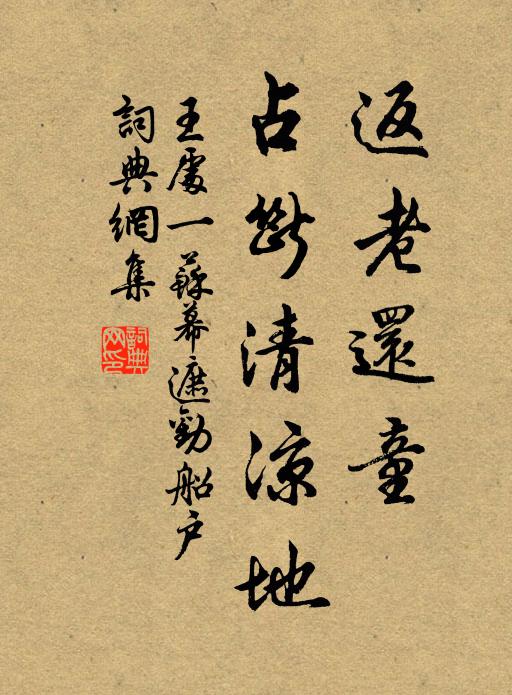 返老還童
占斷清涼地
王處一蘇幕遮勸船戶
詞典網集
詞典网印